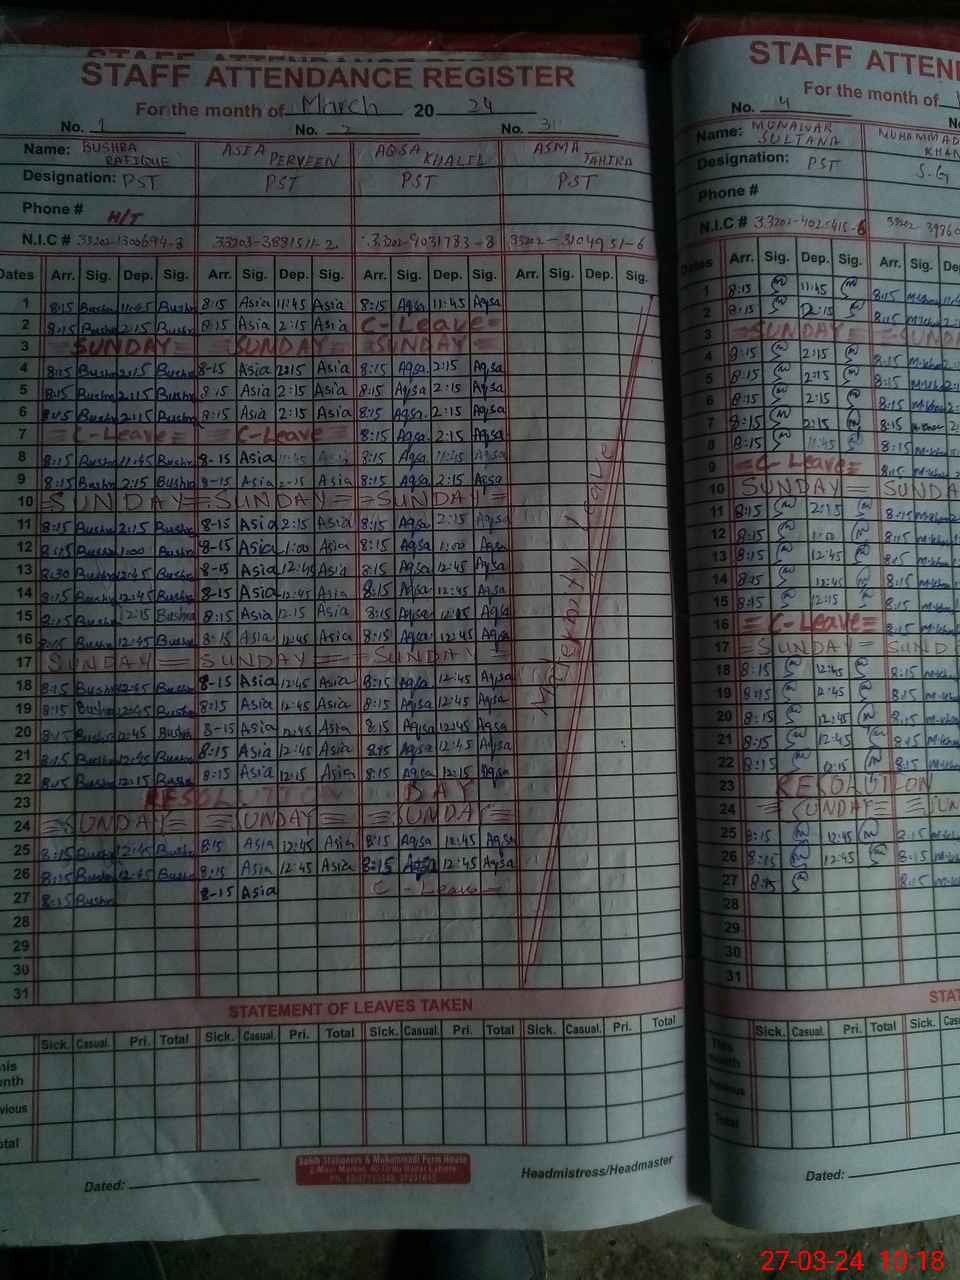 STAFF ATTENDANCE REGISTER
For the month of March 2024
No. 1 No. 2 No. 3
Name: BUSHRA RAFIQUE ASIA PERVEEN AQSA KHALIL ASMA TAHIRA
Designation: PST PST PST PST
Phone #
H/T
N.I.C # 33202-1300694-8 33203-3881511-2 33202-9031783-8 33202-3104951-6
Dates Arr. Sig. Dep. Sig. Arr. Sig. Dep. Sig. Arr. Sig. Dep. Sig. Arr. Sig. Dep. Sig.
1 8:15 Bushra 11:45 Bushra 8:15 Asia 11:45 Asia 8:15 Aqsa 11:45 Aqsa
2 8:15 Bushra 2:15 Bushra 8:15 Asia 2:15 Asia C-Leave
3 SUNDAY SUNDAY SUNDAY
4 8:15 Bushra 2:15 Bushra 8-15 Asia 2:15 Asia 8:15 Aqsa 2:15 Aqsa
5 8:15 Bushra 2:15 Bushra 8:15 Asia 2:15 Asia 8:15 Aqsa 2:15 Aqsa
6 8:15 Bushra 2:15 Bushra 8:15 Asia 2:15 Asia 8:15 Aqsa 2:15 Aqsa
7 C-Leave C-Leave 8:15 Aqsa 2:15 Aqsa
8 8:15 Bushra 11:45 Bushra 8-15 Asia 11:45 Asia 8:15 Aqsa 11:45 Aqsa
9 8:15 Bushra 2:15 Bushra 8-15 Asia 2-15 Asia 8:15 Aqsa 2:15 Aqsa
10 SUNDAY SUNDAY SUNDAY
11 8:15 Bushra 2:15 Bushra 8-15 Asia 2:15 Asia 8:15 Aqsa 2:15 Aqsa
12 8:15 Bushra 1:00 Bushra 8-15 Asia 1:00 Asia 8:15 Aqsa 1:00 Aqsa
13 8:30 Bushra 12:45 Bushra 8-15 Asia 12:45 Asia 8:15 Aqsa 12:45 Aqsa
14 8:15 Bushra 12:45 Bushra 8-15 Asia 12:45 Asia 8:15 Aqsa 12:45 Aqsa
15 8:15 Bushra 12:15 Bushra 8:15 Asia 12:15 Asia 8:15 Aqsa 12:15 Aqsa
16 8:15 Bushra 12:45 Bushra 8-15 Asia 12:45 Asia 8:15 Aqsa 12:45 Aqsa
17 SUNDAY SUNDAY SUNDAY
18 8:15 Bushra 12:45 Bushra 8-15 Asia 12:45 Asia 8:15 Aqsa 12:45 Aqsa
19 8:15 Bushra 12:45 Bushra 8:15 Asia 12:45 Asia 8:15 Aqsa 12:45 Aqsa
20 8:15 Bushra 12:45 Bushra 8-15 Asia 12:45 Asia 8:15 Aqsa 12:45 Aqsa
21 8:15 Bushra 12:45 Bushra 8:15 Asia 12:45 Asia 8:15 Aqsa 12:45 Aqsa
22 8:15 Bushra 12:15 Bushra 8:15 Asia 12:15 Asia 8:15 Aqsa 12:15 Aqsa
23 RESOLUTION DAY
24 SUNDAY SUNDAY SUNDAY
25 8:15 Bushra 12:45 Bushra 8:15 Asia 12:45 Asia 8:15 Aqsa 12:45 Aqsa
26 8:15 Bushra 12:45 Bushra 8:15 Asia 12:45 Asia 8:15 Aqsa 12:45 Aqsa
27 8:15 Bushra 8-15 Asia C-Leave
28
29
30
31
Leave
STATEMENT OF LEAVES TAKEN
Sick. Casual. Pri. Total Sick. Casual. Pri. Total Sick. Casual. Pri. Total Sick. Casual. Pri. Total
Dated: Headmistress/Headmaster
STAFF ATTEN
For the month of
No. 4
Name: MUNAWAR SULTANA MUHAMMAD KHAN
Designation: PST S.G
Phone #
N.I.C # 33202-4025415-6
Dates Arr. Sig. Dep. Sig. Arr. Sig.
1 8:15 11:45 8:15
2 8:15 2:15 8:15
3 SUNDAY
4 8:15 2:15 8:15
5 8:15 2:15 8:15
6 8:15 2:15 8:15
7 8:15 2:15 8:15
8 8:15 11:45 8:15
9 C-Leave 8:15
10 SUNDAY SUNDA
11 8:15 2:15 8:15
12 8:15 1:00 8:15
13 8:15 12:45 8:15
14 8:15 12:45 8:15
15 8:15 12:15 8:15
16 C-Leave 8:15
17 SUNDAY SUND
18 8:15 12:45 8:15
19 8:15 12:45 8:15
20 8:15 12:45 8:15
21 8:15 12:45 8:15
22 8:15 12:15 8:15
23 RESOLUTION
24 SUNDAY SUN
25 8:15 12:45
26 8:15 12:45 8:15
27 8:15 8:15
28
29
30
31
STAT
Sick. Casual. Pri. Total Sick. Cas
This month
Previous
Total
Dated:
27-03-24 10:18